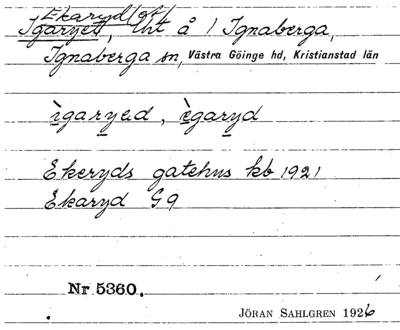 Ekaryd (gt)
Igaryet, lht å 1 Ignaberga,
Ignaberga sn, Västra Göinge hd, Kristianstad län
ìgaryed, ègaryd
Ekeryds gatehus kb 1921
Ekaryd G9
Nr 5360.
JÖRAN SAHLGREN 1926